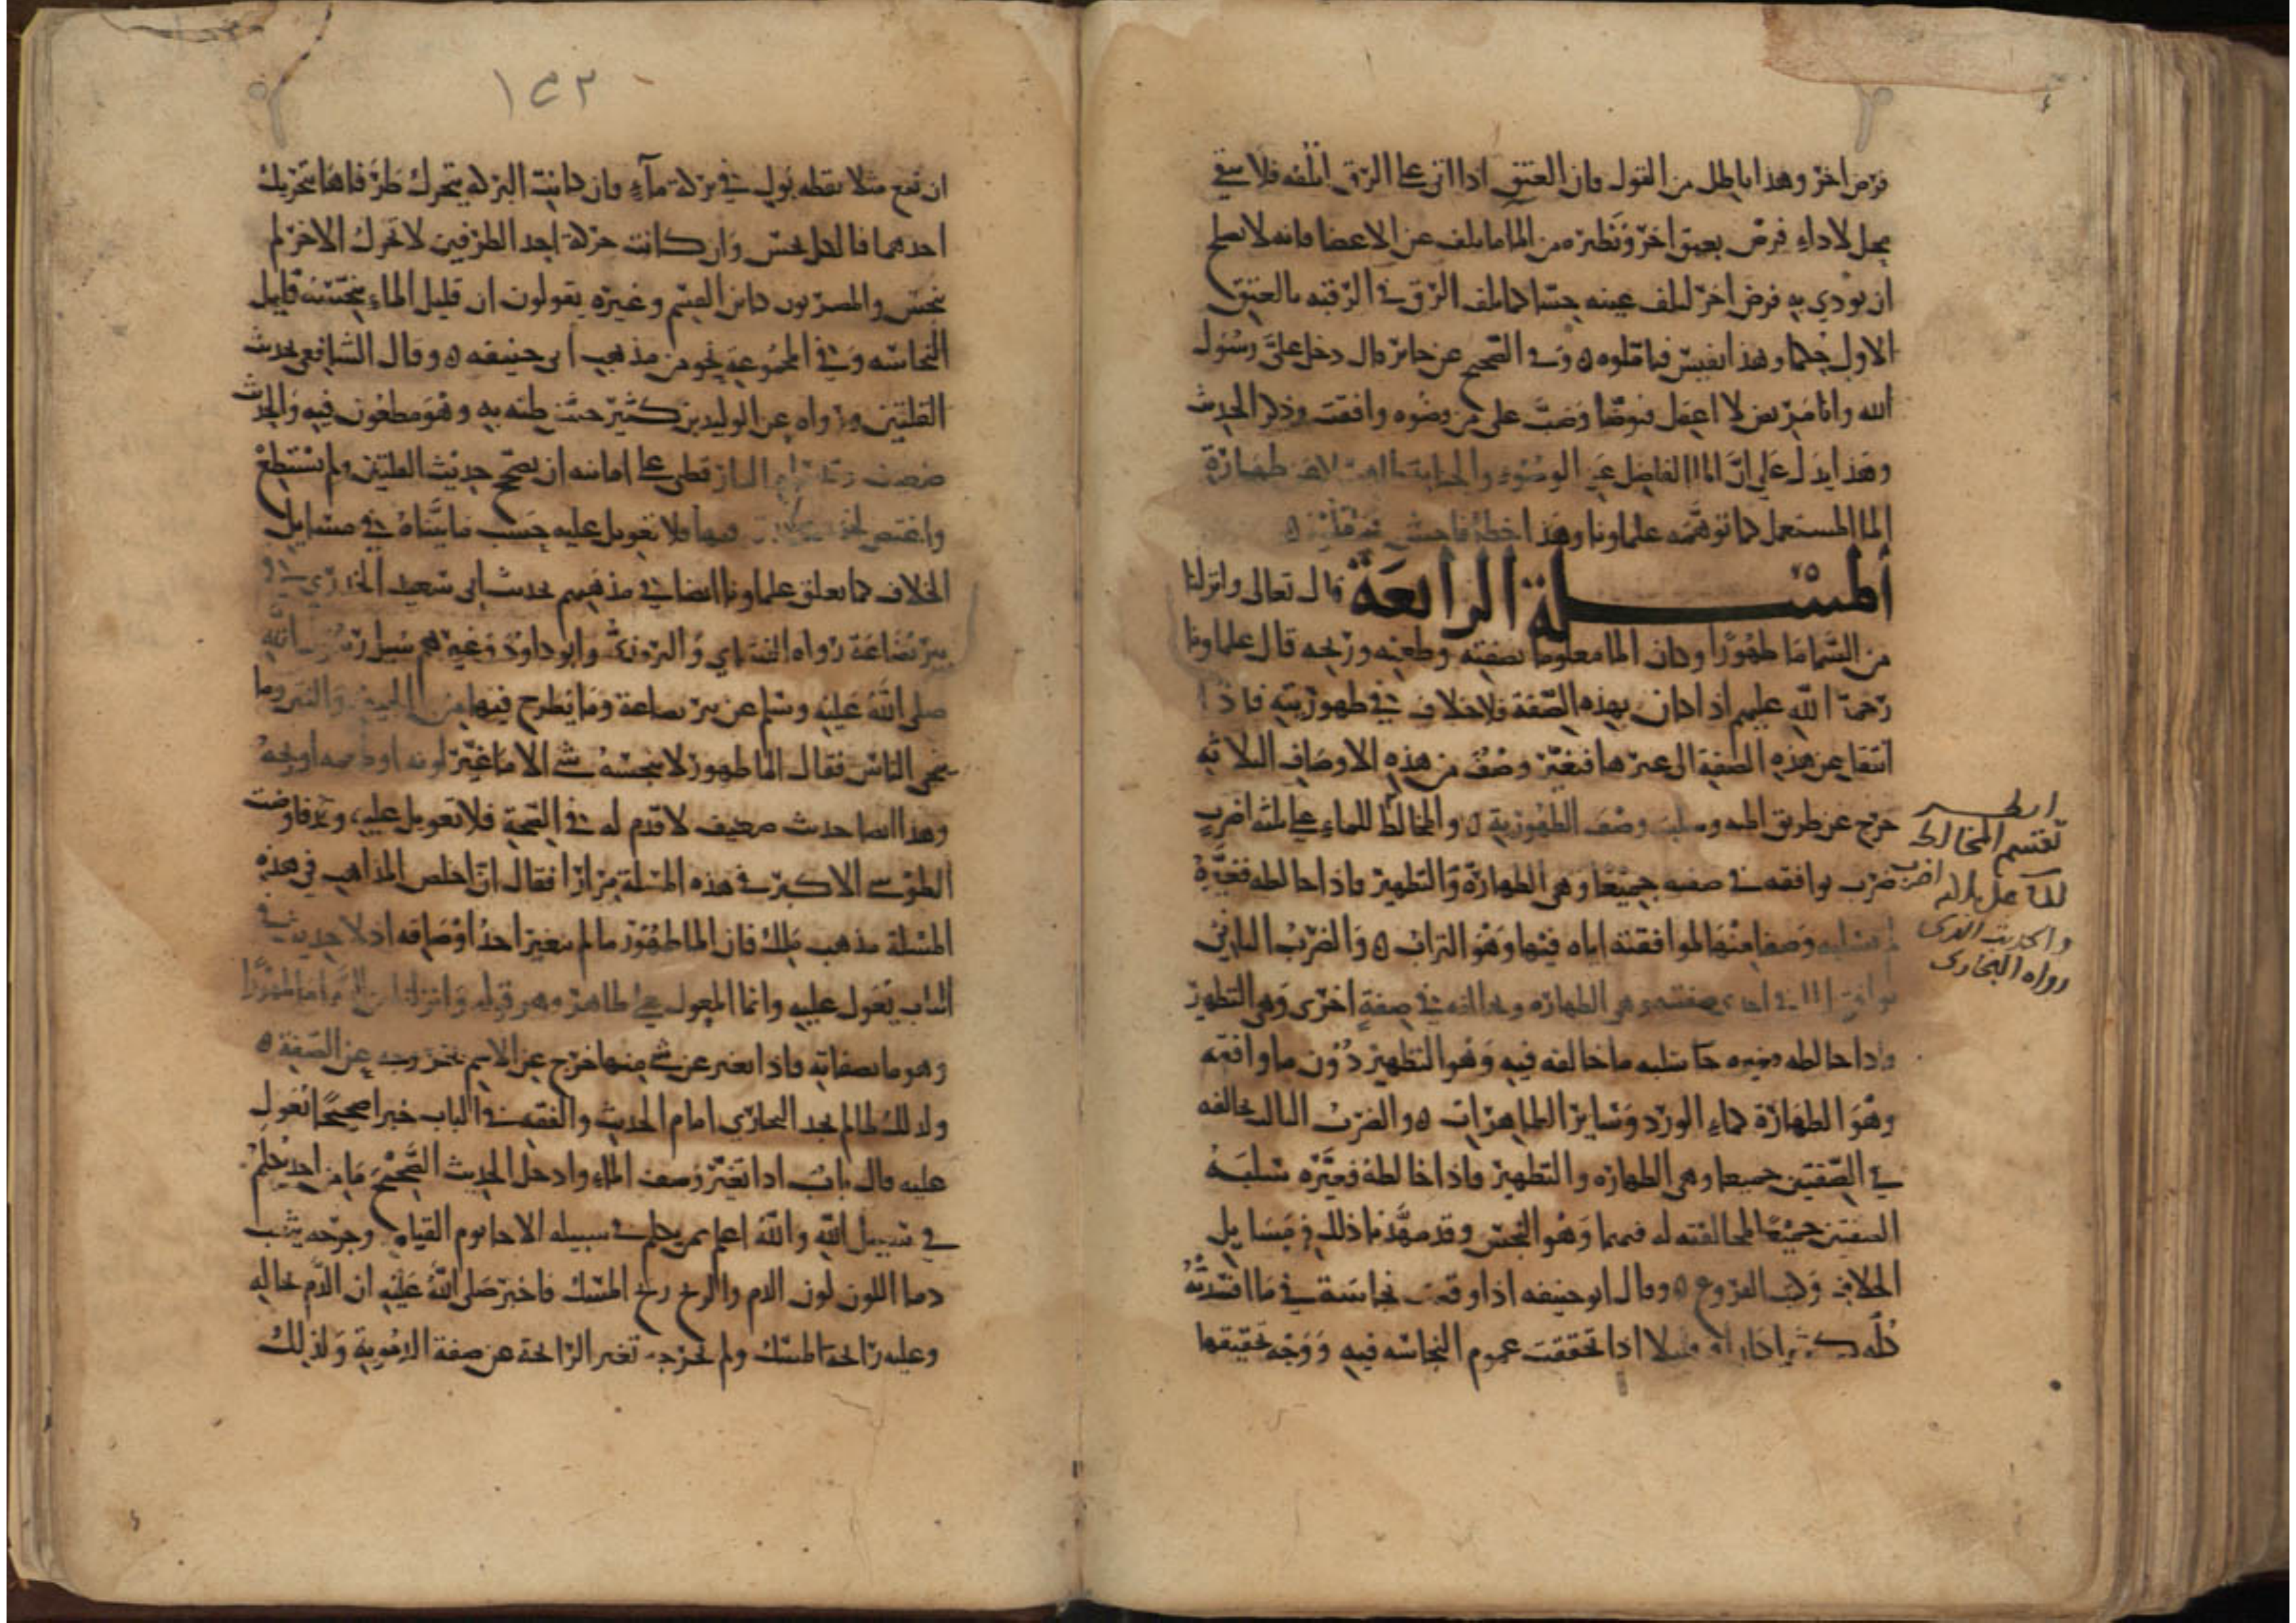 فرض اخر وهذا باطل من القول فان العتق اذا اتى على الرق اتلفه فلا يبقى
محل لاداء فرض بعتق اخر ونظيره من الما ما تلف عن الاعضا فانه لا يصلح
ان يودي به فرض اخر لتلف عينه حسا كما تلف الرق في الرقبه بالعتق
الاول حكما وهذا نفيس فتاملوه ه وفي الصحيح عن جابر قال دخل علي رسول
الله وانا مريض لا اعقل فتوضا وصب علي من وضوه وافقت وذكر الحديث
وهذا يدل على ان الما الفاضل عن الوضوء والجنابة طاهر لا طهارة
الما المستعمل كما توهمه علماونا وهذا خطأ فاحش فتاملوه ه
المسلة الرابعة قال تعالى وانزلنا
من السما ما طهورا وكان الما معلوما بصفته وطعمه وريحه قال علماونا
رحمة الله عليهم اذا كان بهذه الصفة فلا خلاف في طهوريته فاذا
انتقل عن هذه الصفة الى غيرها فتغير وصف من هذه الاوصاف الثلاثه
خرج عن طريق السنه وسلب وصف الطهورية ه والمخالط للماء على ثلثه اضرب
ضرب يوافقه في صفتيه جميعا وهي الطهارة والتطهير فاذا خالطه فغيره
لم يسلبه وصفا منهما لموافقته اياه فيها وهو التراب ه والضرب الثاني
يوافق الما في احدى صفتيه وهي الطهاره ويخالفه في صفة اخرى وهي التطهير
واذا خالطه وغيره سلبه ما خالفه فيه وهو التطهير دون ما وافقه
وهو الطهارة كماء الورد وساير الطاهرات ه والضرب الثالث يخالفه
في الصفتين جميعا وهي الطهاره والتطهير فاذا خالطه فغيره سلبه
الصفتين جميعا لمخالفته له فيهما وهو النجس وقد مهدنا ذلك في مسايل
الخلاف وكتب الفروع ه وقال ابو حنيفه اذا وقعت نجاسة في ما افسدته
كله كثيرا كان او قليلا اذا تحققت عموم النجاسه فيه ووجه تحقيقها
انظر
تقسيم المخالط
للماء على ثلاثة اضرب
والحديث الذي
رواه البخاري
١٥٣
ان تقع مثلا نقطه بول في بركة ماء فان كانت البركه يتحرك طرفاها بتحريك
احدهما فالكل نجس وان كانت حركة احد الطرفين لا تحرك الاخر لم
ينجس والمصريون كابن القسم وغيره يقولون ان قليل الماء ينجسه قليل
النجاسه وفي المجموعة نحو من مذهب ابى حنيفه ه وقال الشافعي بحديث
القلتين ورواه عن الوليد بن كثير حسن ظنه به وهو مطعون فيه والحديث
ضعيف وقد رام الدارقطني على امامته ان يصحح حديث القلتين ولم يستطع
واغتص فيها فلا تعويل عليه حسب ما بيناه في مسايل
الخلاف كما تعلق علماونا ايضا في مذهبهم بحديث ابى سعيد الخدري في
بير بضاعة رواه النساي والترمذي وابو داود وغيرهم سيل رسول الله
صلى الله عليه وسلم عن بير بضاعة وما يطرح فيها من الجيف والنتن وما
ينجي الناس فقال الما طهور لا ينجسه شي الا ما غير لونه او طعمه او ريحه
وهذا ايضا حديث ضعيف لا قدم له في الصحة فلا تعويل عليه وقد فاوضت
الطوسي الاكبر في هذه المسلة مرارا فقال ان اخلص المذاهب في هذه
المسلة مذهب ملك فان الما طهور ما لم يتغير احد اوصافه اذ لا حديث في
الباب يعول عليه وانما المعول على ظاهر وهو قوله وانزلنا من السما ما طهورا
وهو ما بصفاته فاذا تغير عن شي منها خرج عن الاسم بخروجه عن الصفة ه
ولذلك لما لم يجد البخاري امام الحديث والفقه في الباب خبرا صحيحا يعول
عليه قال باب اذا تغير وصف الماء وادخل الحديث الصحيح ما من احد يكلم
في سبيل الله والله اعلم بمن يكلم في سبيله الا جا يوم القيامه وجرحه يثعب
دما اللون لون الدم والريح ريح المسك فاخبر صلى الله عليه ان الدم بحاله
وعليه رائحة المسك ولم تخرجه تغير الرائحة عن صفة الدموية ولذلك